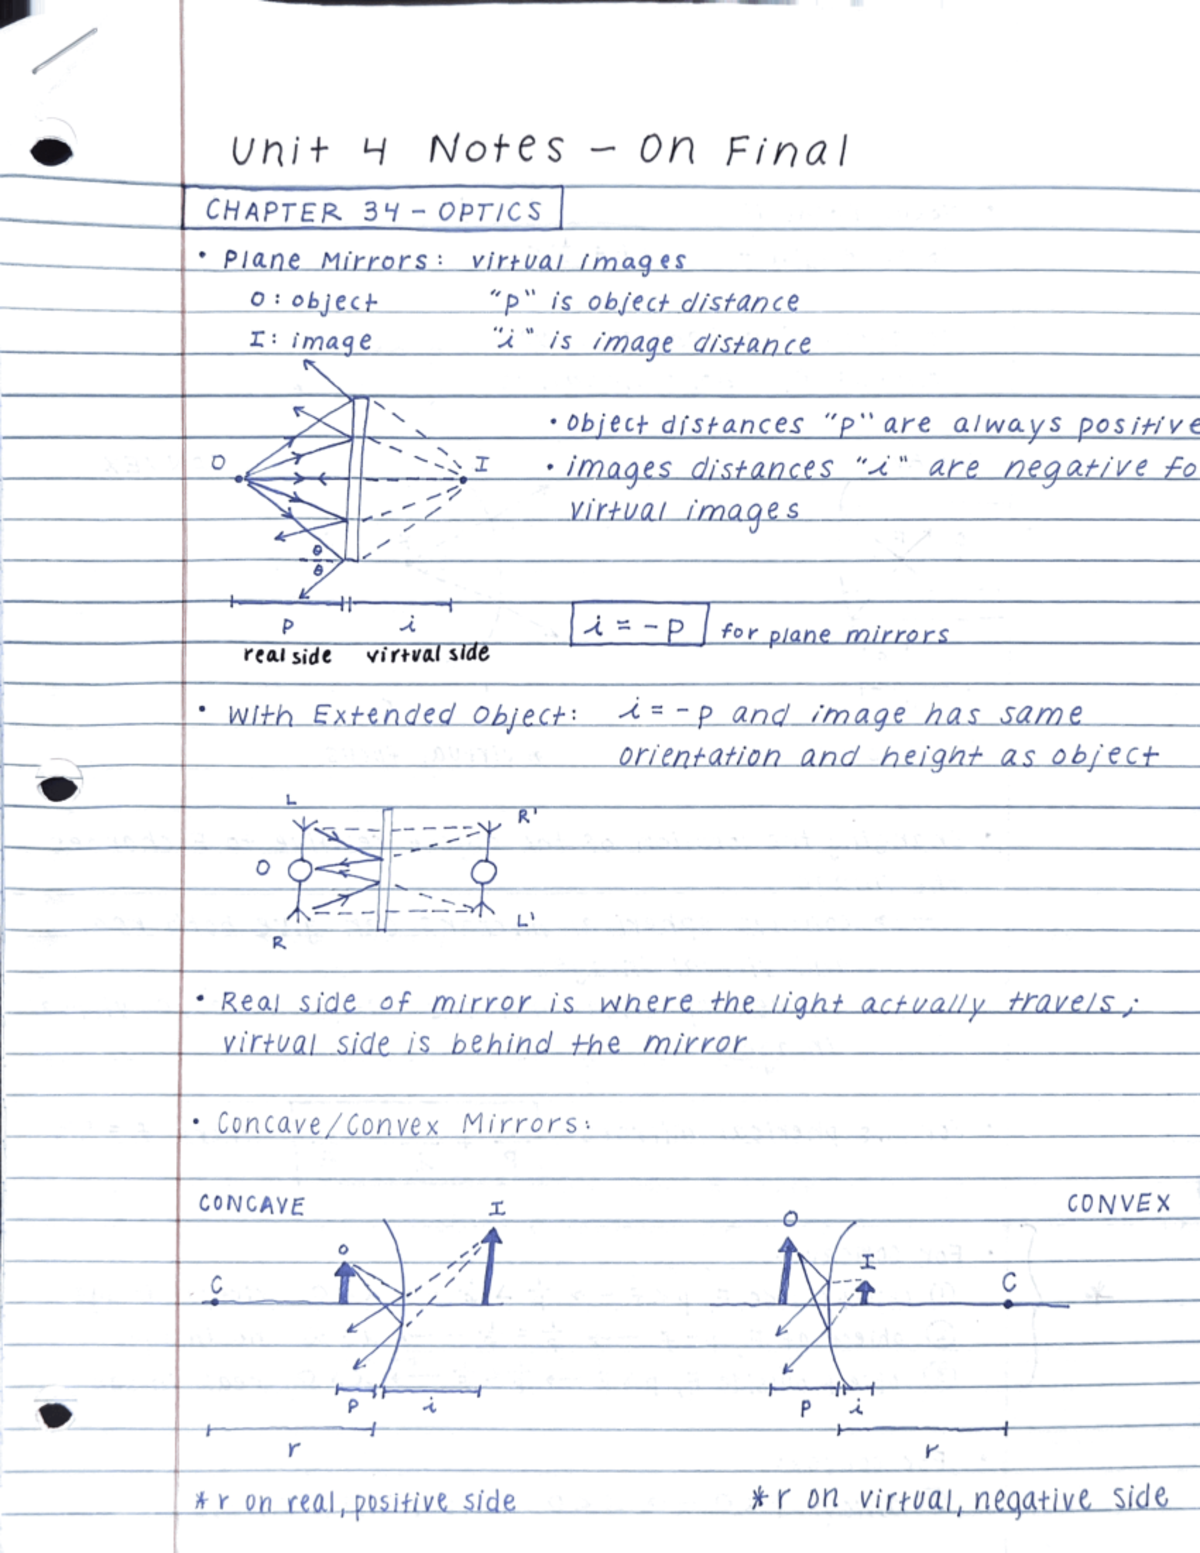 Unit 4 Notes - On Final
CHAPTER 34 - OPTICS
• Plane Mirrors: virtual images
O: object "p" is object distance
I: image "i" is image distance
• Object distances "p" are always positive
O I • images distances "i" are negative fo
virtual images
θ
θ
p i i = -p for plane mirrors
real side virtual side
• With Extended Object: i = -p and image has same
orientation and height as object
L R'
O
R L'
• Real side of mirror is where the light actually travels;
virtual side is behind the mirror
• Concave/Convex Mirrors:
CONCAVE I O CONVEX
O I
C C
p i p i
r r
*r on real, positive side *r on virtual, negative side